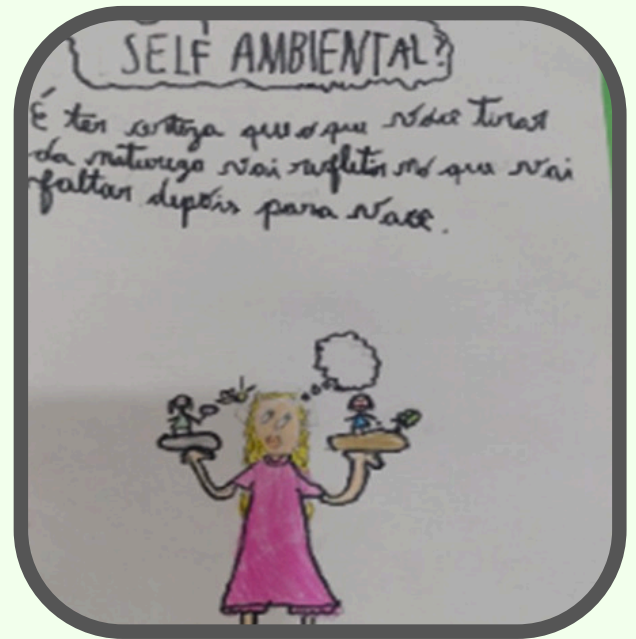 SELF AMBIENTAL?
É ter certeza que o que você tirar
da natureza vai refletir no que vai
faltar depois para você.